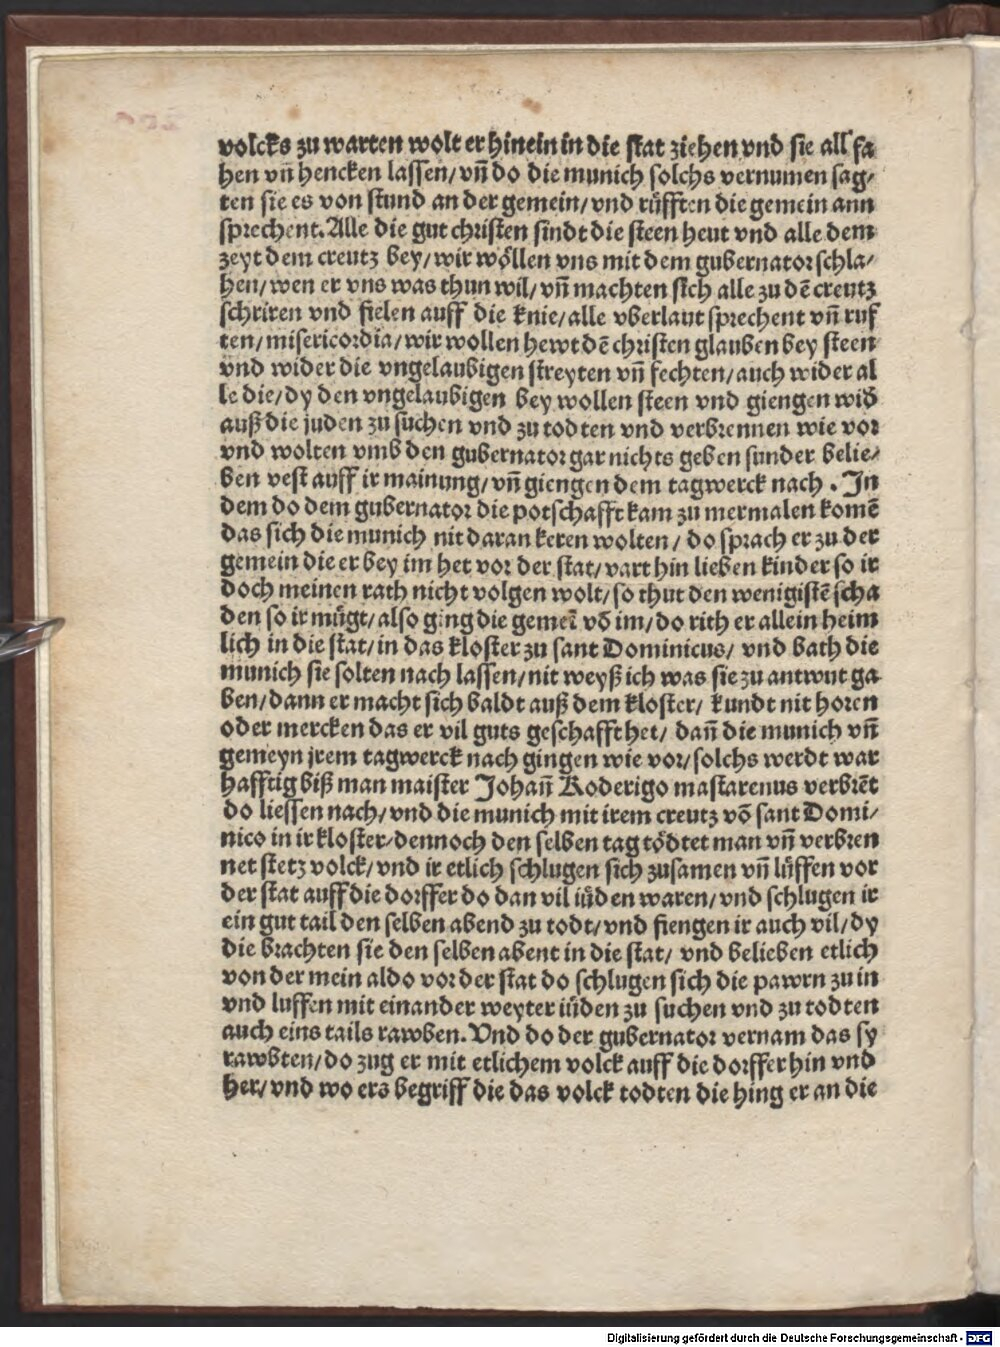 volcks zu warten wolt er hinein in die stat ziehen vnd sie all fa
hen vn̄ hencken lassen/vn̄ do die munich solchs vernumen sag/
ten sie es von stund an der gemein/vnd rüfften die gemein ann
sprechent. Alle die gut christen sindt die steen heut vnd alle dem
zeyt dem creutz bey/wir wöllen vns mit dem gubernator schla/
hen/wen er vns was thun wil/vn̄ machten sich alle zu dē creutz
schriren vnd fielen auff die knie/alle vberlaut sprechent vn̄ ruf
ten/misericordia/wir wollen hewt dē christen glauben bey steen
vnd wider die vngelaubigen streyten vn̄ fechten/auch wider al
le die/dy den vngelaubigen bey wollen steen vnd giengen wid̄
auß die juden zu suchen vnd zu todten vnd verbrennen wie vor
vnd wolten vmb den gubernator gar nichts geben sunder belie/
ben vest auff ir mainung/vn̄ giengen dem tagwerck nach. In
dem do dem gubernator die potschafft kam zu mermalen komē
das sich die munich nit daran keren wolten/do sprach er zu der
gemein die er bey im het vor der stat/vart hin lieben kinder so ir
doch meinen rath nicht volgen wolt/so thut den wenigistē scha
den so ir mügt/also ging die gemeī vō im/do rith er allein heim
lich in die stat/in das kloster zu sant Dominicus/vnd bath die
munich sie solten nach lassen/nit weyß ich was sie zu antwut ga
ben/dann er macht sich baldt auß dem kloster/kundt nit horen
oder mercken das er vil guts geschafft het/dan̄ die munich vn̄
gemeyn jrem tagwerck nach gingen wie vor/solchs werdt war
hafftig biß man maister Johan̄ Roderigo mastarenus verbrēt
do liessen nach/vnd die munich mit irem creutz vō sant Domi/
nico in ir kloster/dennoch den selben tag tödtet man vn̄ verbren
net stetz volck/vnd ir etlich schlugen sich zusamen vn̄ lüffen vor
der stat auff die dorffer do dan vil iüden waren/vnd schlugen ir
ein gut tail den selben abend zu todt/vnd fiengen ir auch vil/dy
die brachten sie den selben abent in die stat/vnd belieben etlich
von der mein aldo vor der stat do schlugen sich die pawrn zu in
vnd luffen mit einander weyter iüden zu suchen vnd zu todten
auch eins tails rawben. Vnd do der gubernator vernam das sy
rawbten/do zug er mit etlichem volck auff die dorffer hin vnd
her/vnd wo ers begriff die das volck todten die hing er an die
Digitalisierung gefördert durch die Deutsche Forschungsgemeinschaft - DFG